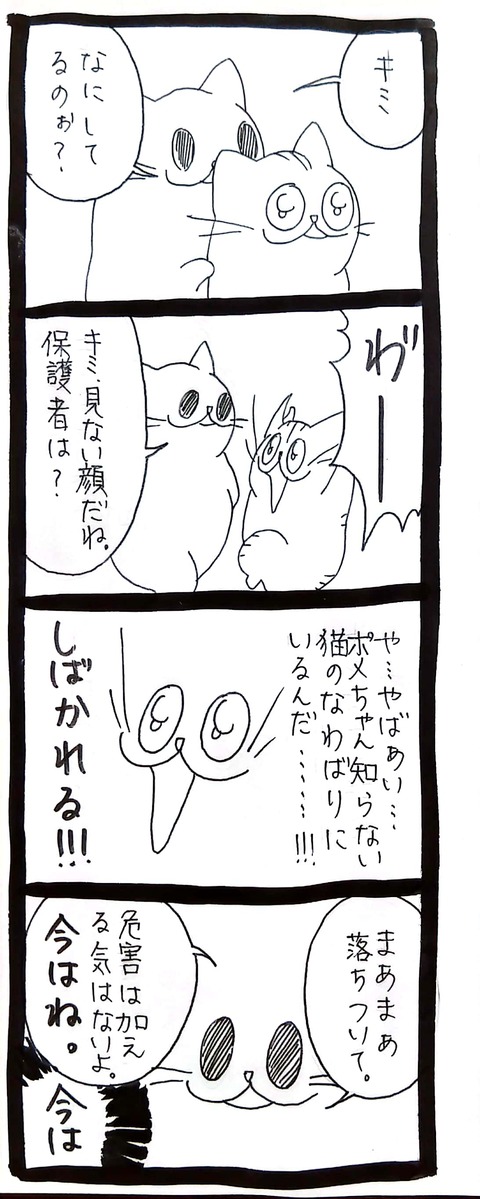 キミ
なにして
るのぉ?
わ゛ー
キミ、見ない顔だね。
保護者は?
や…やばぁい…
ポメちゃん知らない
猫のなわばりに
いるんだ……!!!
しばかれる!!!
まあまぁ
落ちついて。
危害は加え
る気はないよ。
今はね。
今は